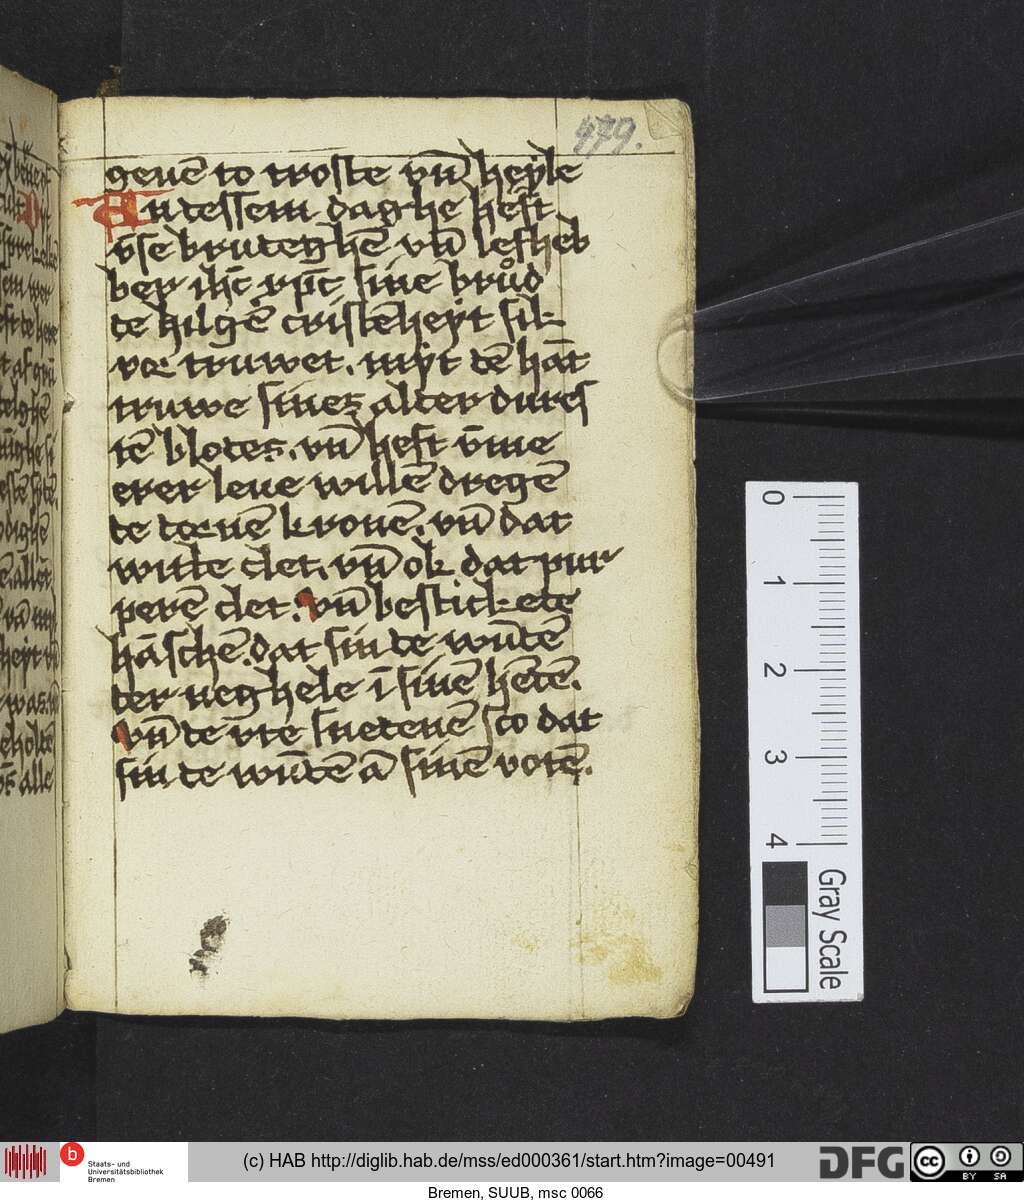 479.
geuē to troste vn̄ heyle
An tessem daghe heft
v̄se brutegħē vn̄ lefheb
ber ih̄c xp̄c sine brůd
te hilgē cristēheyt sik
vor truwet. myt tē hāt
truwe sines alter dures
tē blotes. vn̄ heft v̄me
erer leue willē dregē
te tornē kronē. vn̄ dat
witte clet. vn̄ ok dat pur
perē clet. vn̄ bestickete
hāschē. dat sin te wūtē
ter neghele ī sinē hētē.
vn̄ te v̄te snetenē sco dat
sin te wūtē ā sinē votē.
0
1
2
3
4
Gray Scale
b
Staats- und
Universitätsbibliothek
Bremen
(c) HAB http://diglib.hab.de/mss/ed000361/start.htm?image=00491
DFG
cc
BY SA
Bremen, SUUB, msc 0066